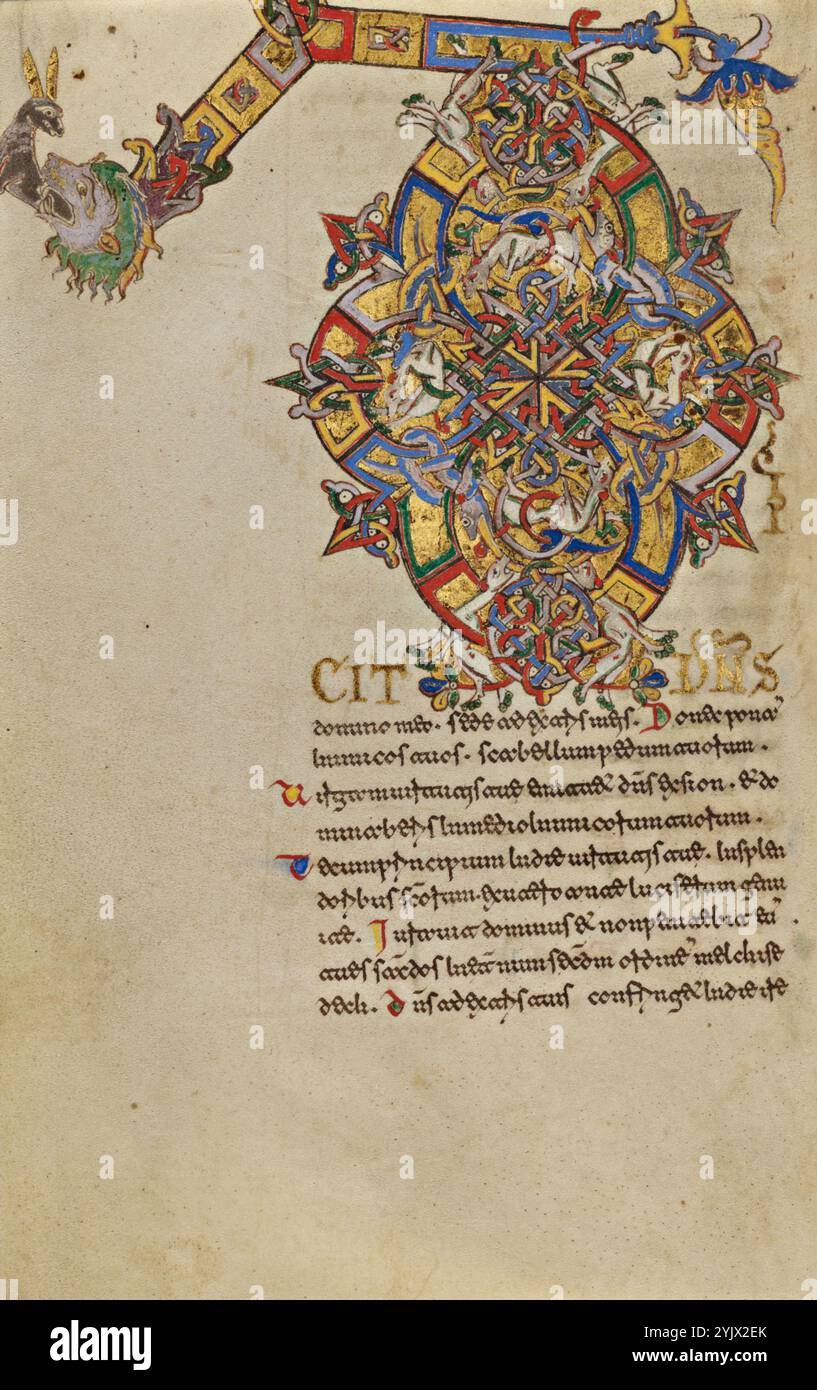 CIT DÑS
domino meo. sede adextris meis. Donec ponam
inimicos tuos. scabellum pedum tuorum.
Virgam uirtutis tue emittet dñs exsion. et do
minaberis inmedio inimicorum tuorum.
Tecum principium indie uirtutis tue. insplen
doribus scõrum. exutero ante luciferum genu
i te. Iurauit dominus et non penitebit eũ
tues sacerdos ineternum secundum ordinẽ melchise
dech. Dñs adextris tuis confringet indie ire
alamy
Image ID: 2YJX2EK
www.alamy.com